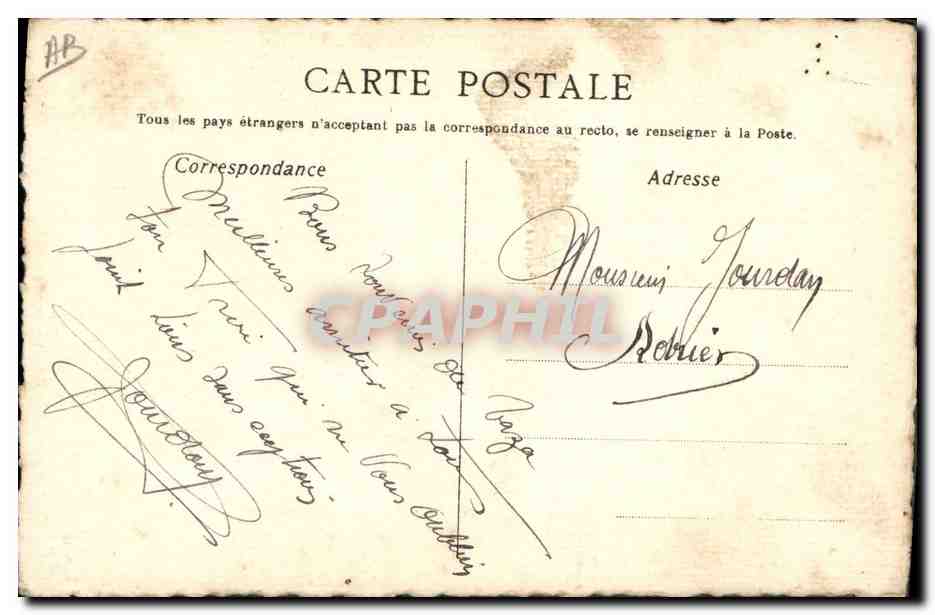 AB
CARTE POSTALE
Tous les pays étrangers n'acceptant pas la correspondance au recto, se renseigner à la Poste.
Correspondance
Adresse
Bons souvenirs de Taza
Meilleures amitiés a tous
ton qui ne vous oublie
sans
Jourdan
Monsieur Jourdan
CPAPHIL